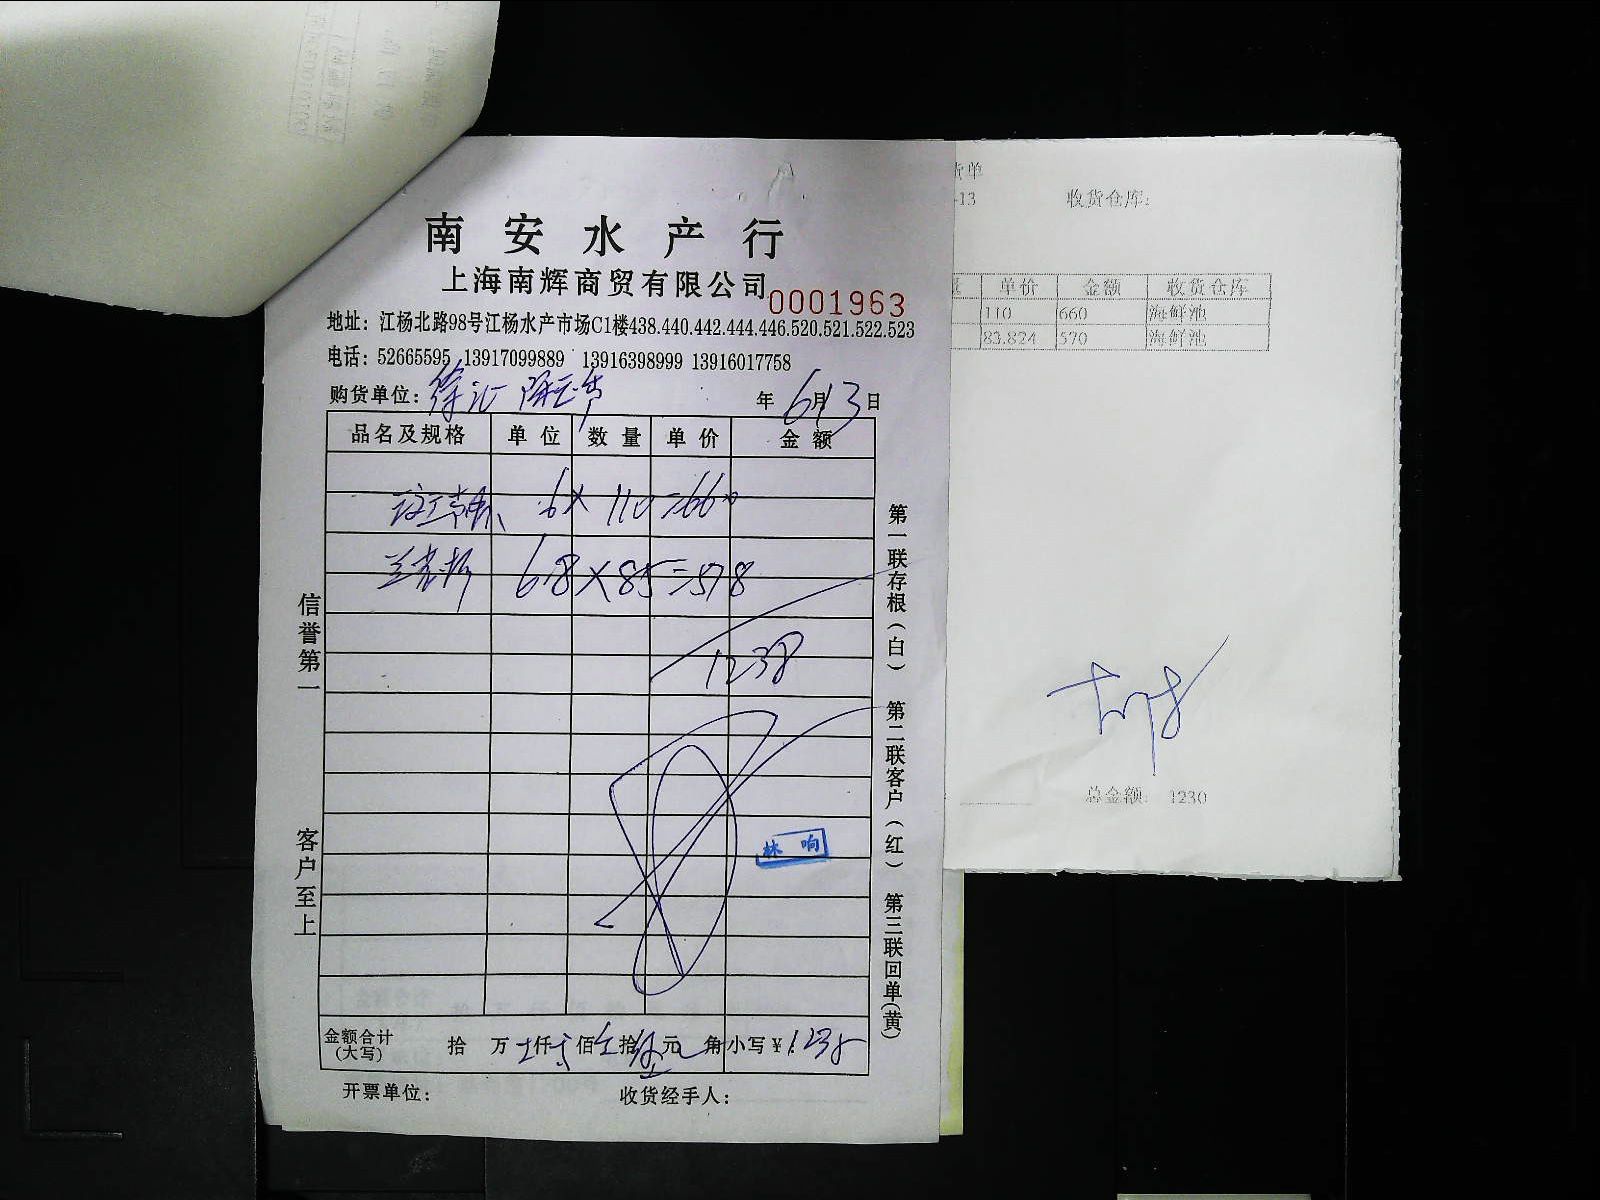 南安水产行
上海南辉商贸有限公司
0001963
地址：江杨北路98号江杨水产市场C1楼438.440.442.444.446.520.521.522.523
电话：52665595 13917099889 13916398999 13916017758
购货单位：徐汇
年 6月13日
品名及规格 单位 数量 单价 金额
6×110=660
6.8×85=578
1238
林响
金额合计(大写) 拾 万 仟 佰 拾 元 角 小写￥：1238
开票单位： 收货经手人：
信誉第一
客户至上
第一联存根(白) 第二联客户(红) 第三联回单(黄)
货单
-13 收货仓库:
单价 金额 收货仓库
110 660 海鲜池
83.824 570 海鲜池
总金额: 1230